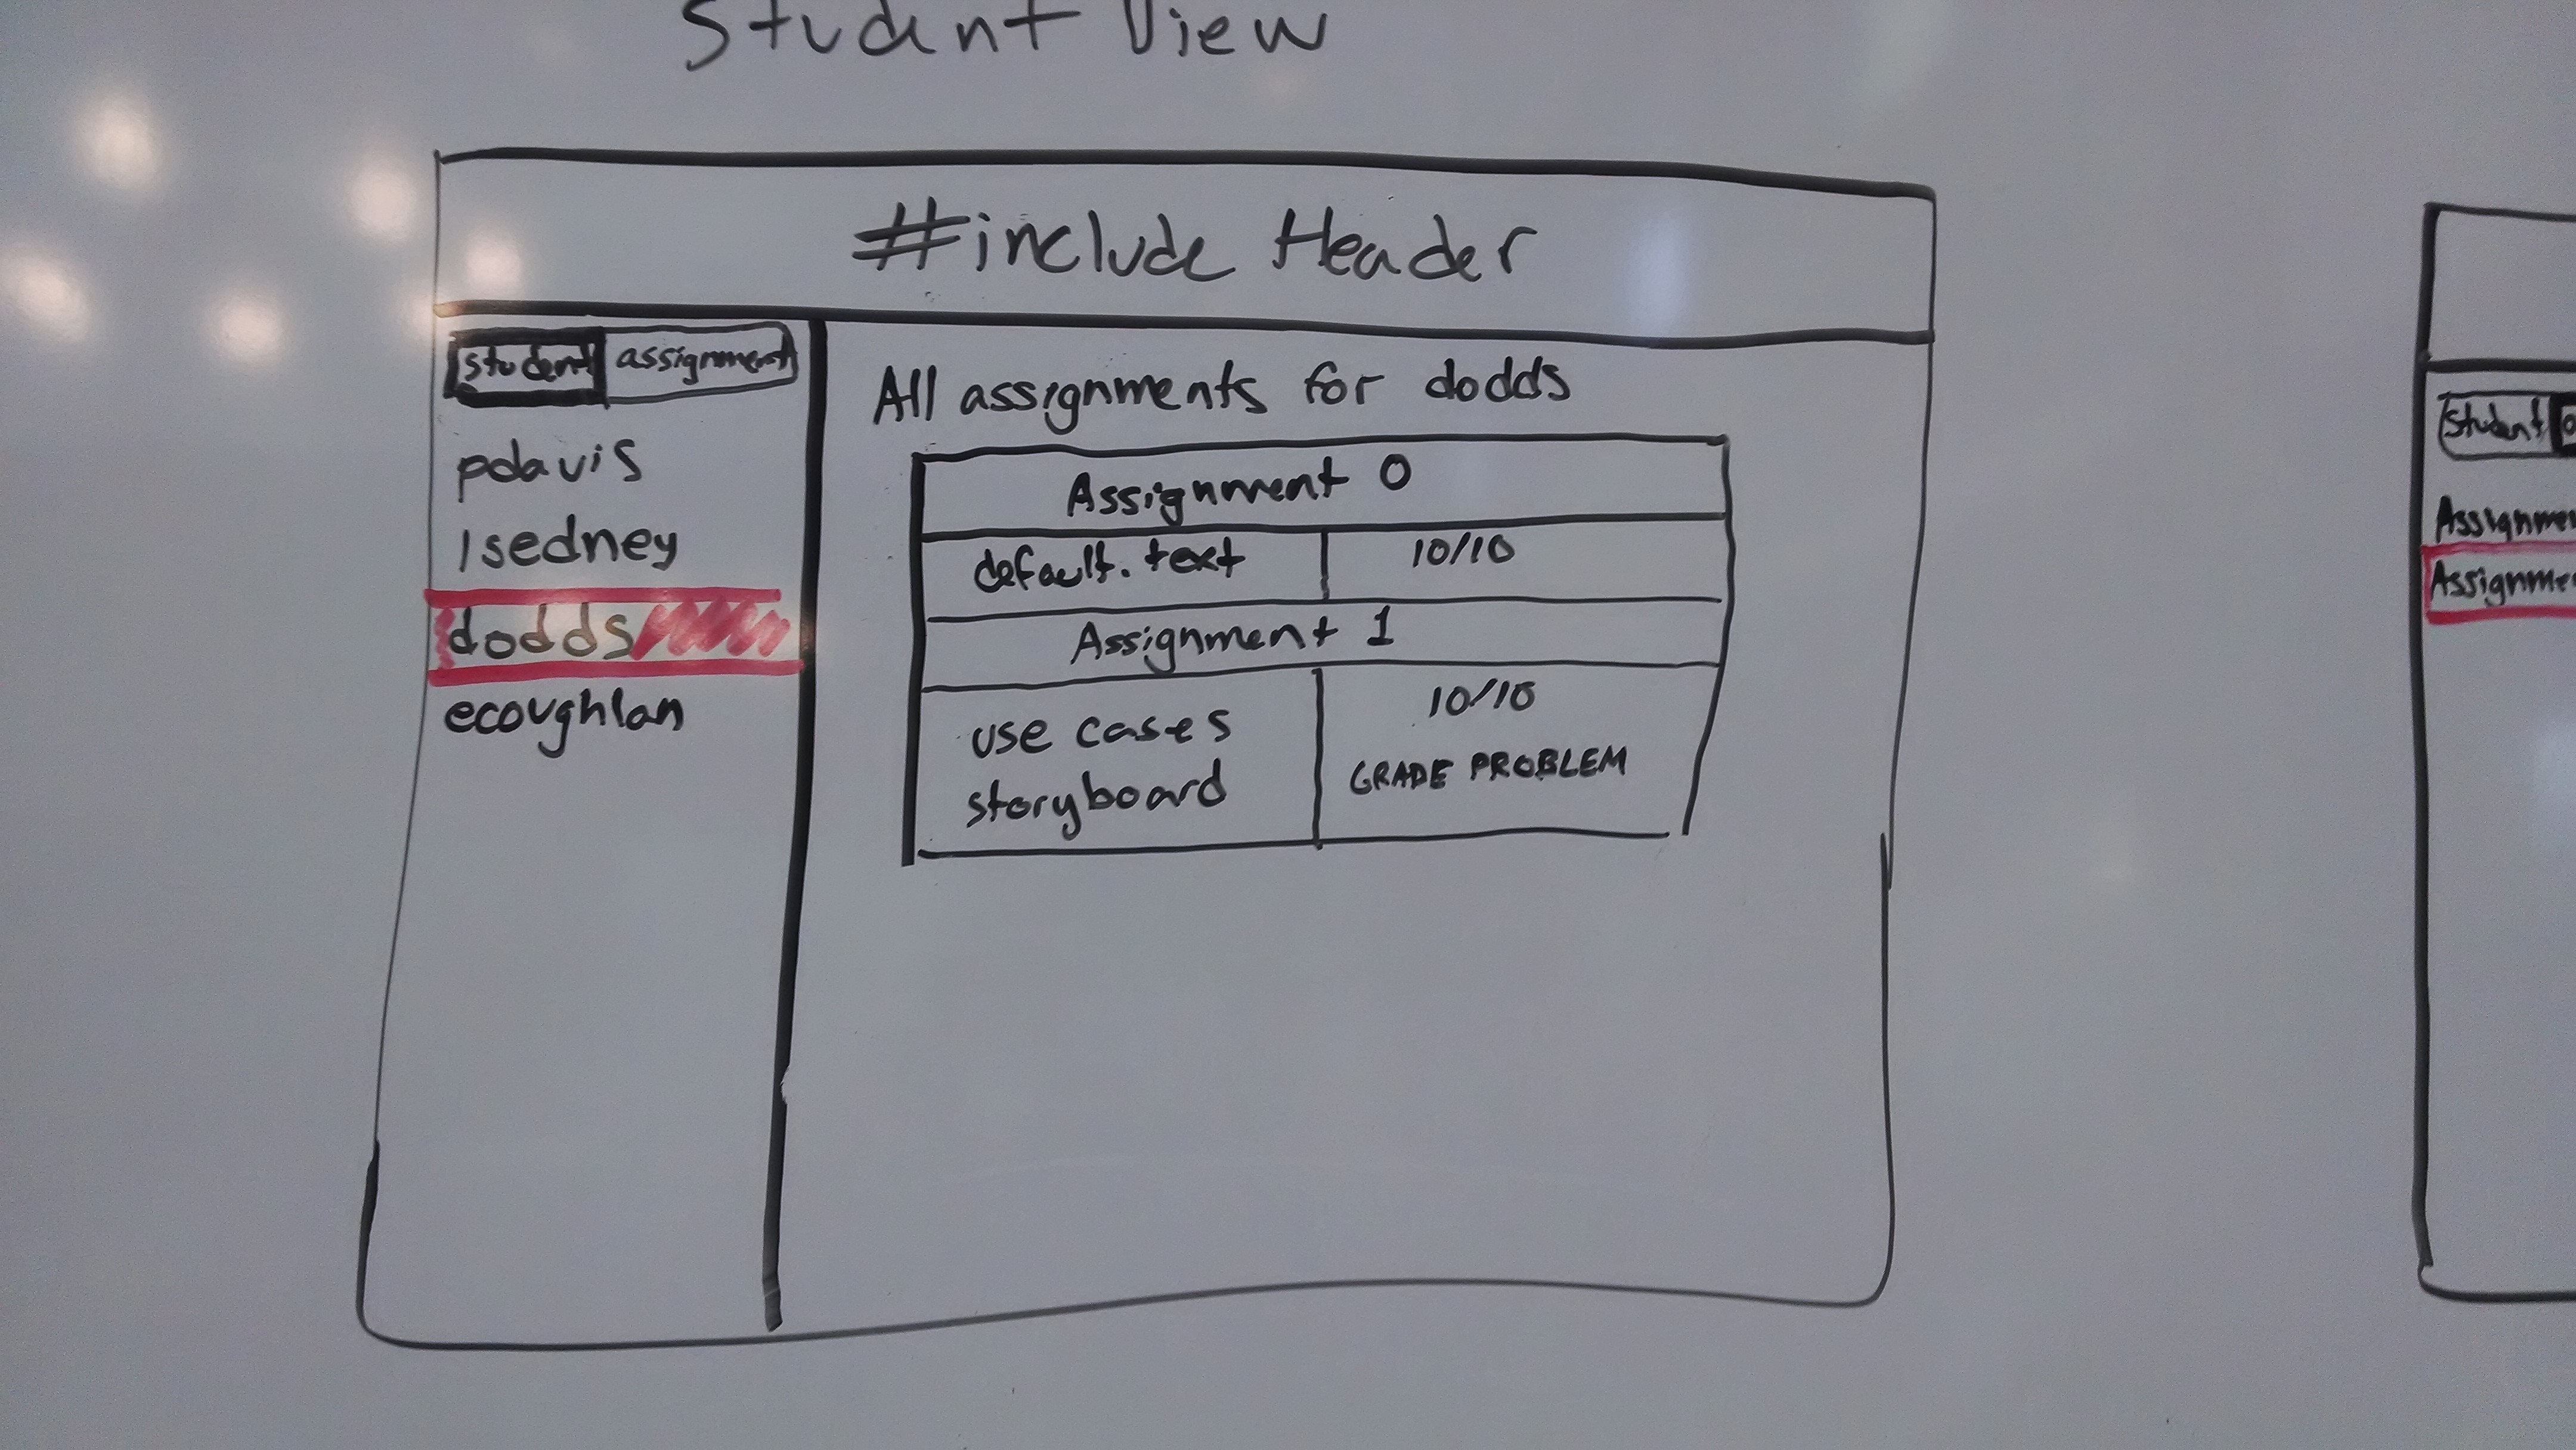 Student View
#include Header
student assignment
pdavis
lsedney
dodds
ecoughlan
All assignments for dodds
Assignment 0
default.text 10/10
Assignment 1
use cases 10/10
storyboard GRADE PROBLEM
student